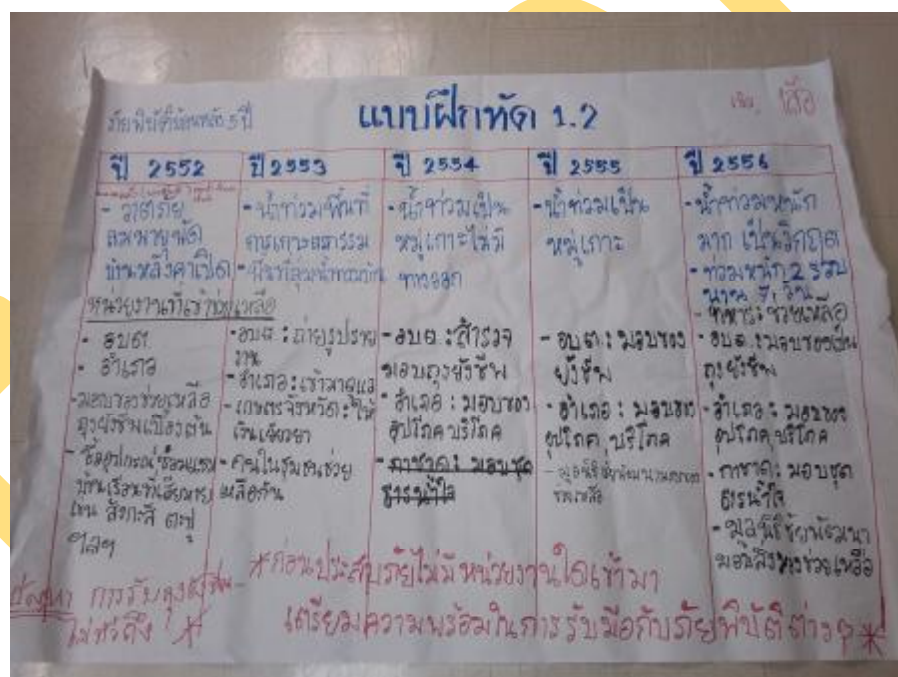 ภัยพิบัติย้อนหลัง 5 ปี
แบบฝึกทัด 1.2
เสือ
ปี 2552
- วาตภัย
ลมพายุพัด
บ้านหลังคาเปิด
หน่วยงานที่เข้าช่วยเหลือ
- อบต.
- อำเภอ
-มอบของช่วยเหลือ
ถุงยังชีพเบื้องต้น
- ซื้ออุปกรณ์ซ่อมแซม
บ้านเรือนที่เสียหาย
เช่น สังกะสี ตะปู
ฯลฯ
ปี 2553
-น้ำท่วมพื้นที่
การเกษตรกรรม
-อบต : ถ่ายรูปราย
งาน
-อำเภอ : เข้ามาดูแล
-เกษตรจังหวัด : ให้
เงินเยียวยา
-คนในชุมชนช่วย
เหลือกัน
ปี 2554
-น้ำท่วมเป็น
หมู่เกาะไม่มี
ทางออก
-อบต : สำรวจ
มอบถุงยังชีพ
- อำเภอ : มอบของ
อุปโภค บริโภค
-กาชาด : มอบชุด
ธารน้ำใจ
ปี 2555
-น้ำท่วมเป็น
หมู่เกาะ
- อบต. : มอบของ
ยังชีพ
- อำเภอ : มอบของ
อุปโภค บริโภค
ช่วยเหลือ
ปี 2556
-น้ำท่วมหนัก
มาก เป็นวิกฤต
-ท่วมหนัก 2 รอบ
นาน 7 วัน
- ทหาร : ช่วยเหลือ
-อบต. : มอบของเป็น
ถุงยังชีพ
-อำเภอ : มอบของ
อุปโภค บริโภค
- กาชาด : มอบชุด
ธารน้ำใจ
- มูลนิธิชัยพัฒนา
มอบสิ่งของช่วยเหลือ
ปัญหา การรับถุงยังชีพ
ไม่ทั่วถึง *
*ก่อนประสบภัยไม่มีหน่วยงานใดเข้ามา
เตรียมความพร้อมในการรับมือกับภัยพิบัติต่างๆ *